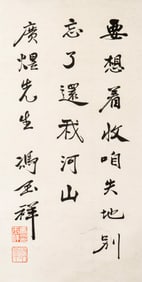 要想着收咱失地别
忘了還我河山
廣煜先生 馮玉祥